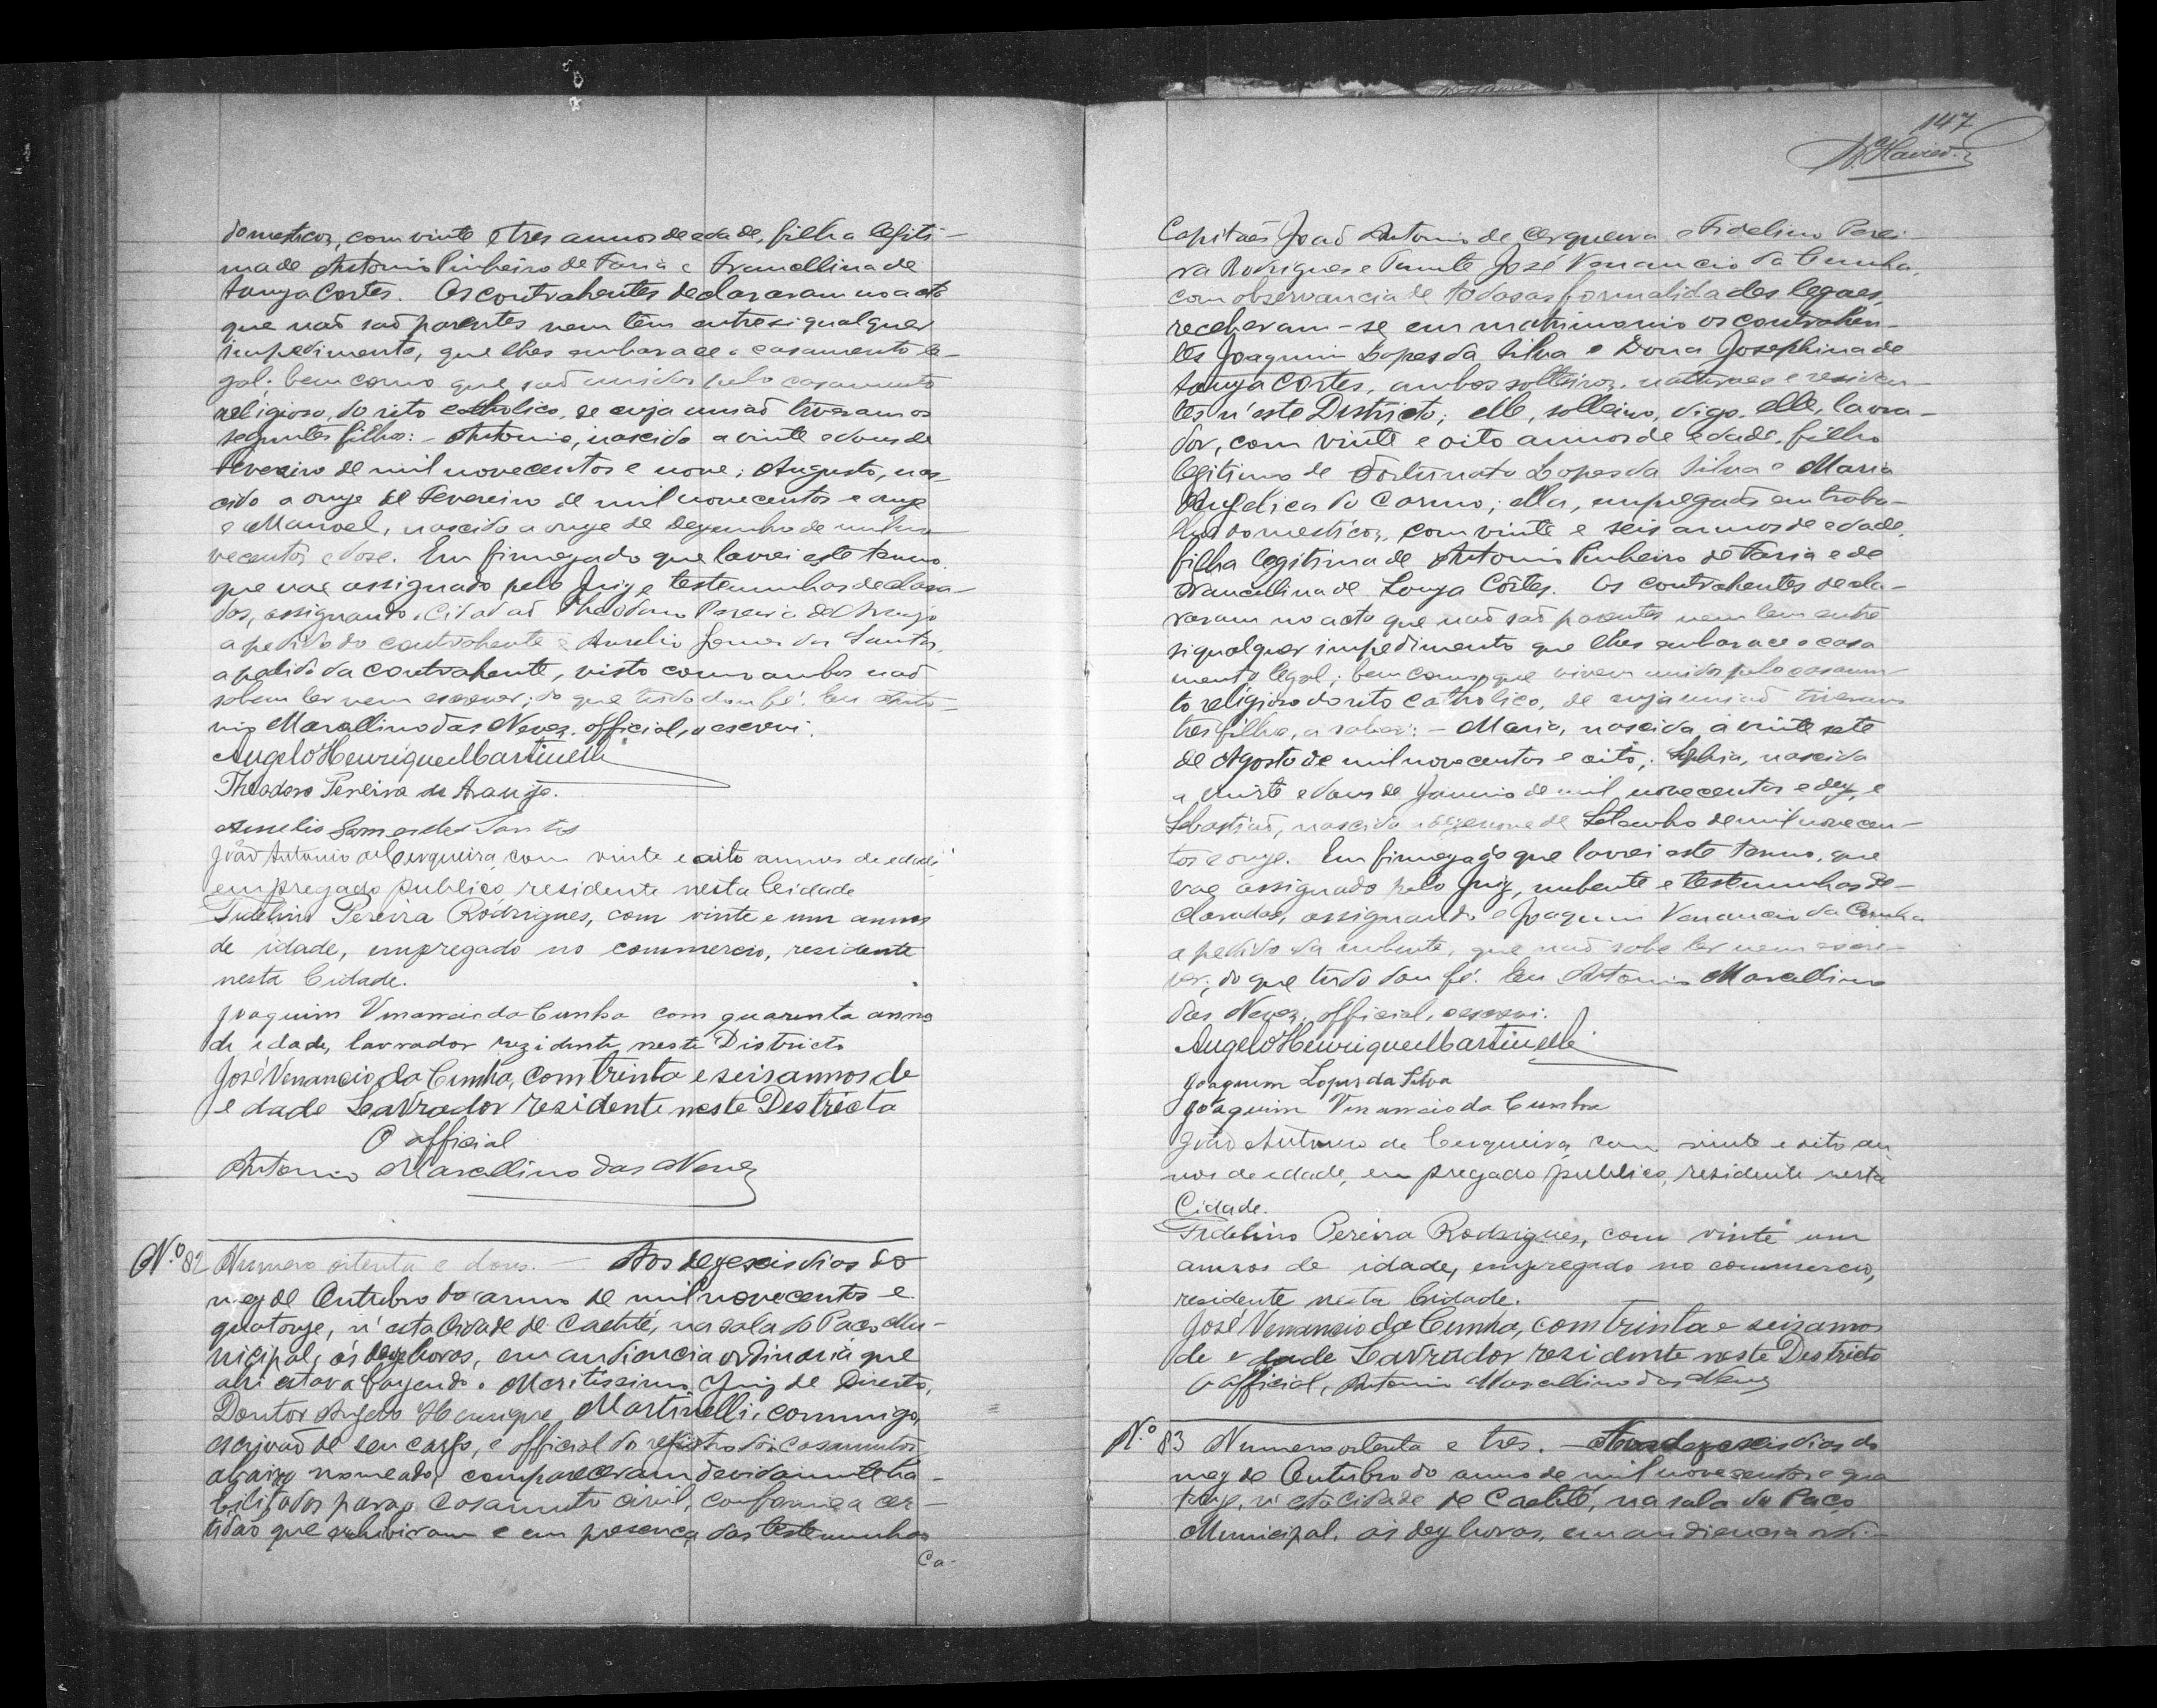 domesticos, com vinte e tres annos de edade, filha legiti-
ma de Antonio Pinheiro de Faria e Francellina de
Souza Cortes. Os contrahentes declararam no acto
que naõ saõ parentes nem têm entre si qualquer
impedimento, que lhes embarace o casamento le-
gal; bem como que saõ unidos pelo casamento
religioso, do rito catholico, de cuja uniaõ tiveram os
seguintes filhos: - Antonio, nascido a vinte e dous de
Fevereiro de mil novecentos e nove; Augusto, nas-
cido a onze de Fevereiro de mil novecentos e onze
e Manoel, nascido a onze de Dezembro de mil no-
vecentos e dose. Em firmeza do que lavrei este termo.
que vae assignado pelo Juiz e testemunhas declara-
das, assignando o Cidadaõ Theodoro Pereira de Araujo
a pedido do contrahente e Aurelio Gomes dos Santos,
a pedido da contrahente, visto como ambos naõ
sabem ler nem escrever; do que tudo dou fé. Eu Anto-
nio Marcellino das Neves, official, o escrevi.
Angelo Henrique Martinelli
Theodoro Pereira de Araujo.
Aurelio Gomes dos Santos
João Antonio de Cerqueira, com vinte e oito annos de edade,
empregado publico, residente nesta Cidade
Fidelino Pereira Rodrigues, com vinte e um annos
de idade, empregado no commercio, residente
nesta Cidade.
Joaquim Venancio da Cunha com quarenta annos
de idade, lavrador rezidente neste Districto
José Venancio da Cunha, com trinta e seis annos de
e dade Lavrador rezidente neste Destricto
O official
Antonio Marcellino das Neves
N.º 82 Numero oitenta e dous. - Aos dezeseis dias do
mez de Outubro do anno de mil novecentos e
quatorze, n'esta Cidade de Caetité, na sala do Paço Mu-
nicipal, ás dez horas, em audiencia ordinaria que
ahi estava fazendo o Meritissimo Juiz de Direito,
Doutor Angelo Henrique Martinelli, commigo,
escrivaõ de seu cargo, e official do registro dos casamentos
abaixo nomeado, compareceram devidamente ha-
bilitados para o casamento civil, conforme a cer-
tidaõ que exhibiram e em presença das testemunhas
Ca-
147
Capitães Joaõ Antonio de Cerqueira e Fidelino Perei-
ra Rodrigues e Tenente José Venancio da Cunha,
com observancia de todas as formalidades legaes,
receberam-se em matrimonio os contrahen-
tes Joaquim Lopes da Silva e Dona Josephina de
Souza Cortes, ambos solteiros, naturaes e residen-
tes n'este Districto; elle, solteiro, digo, elle, lavra-
dor, com vinte e oito annos de edade, filho
legitimo de Fortunato Lopes da Silva e Maria
Angelica do Carmo; ella, empregada em traba-
lhos domesticos, com vinte e seis annos de edade,
filha legitima de Antonio Pinheiro de Faria e de
Francellina de Souza Côrtes. Os contrahentes decla-
raram no acto que naõ saõ parentes nem tem entre
si qualquer impedimento que lhes embarace o casa
mento legal; bem como que vivem unidos pelo casamen-
to religioso do rito catholico, de cuja uniaõ tiveram
tres filhos, a saber: - Maria, nascida a vinte sete
de Agosto de mil novecentos e oito; Sophia, nascida
a vinte e dous de Janeiro de mil novecentos e dez, e
Sebastiaõ, nascido a dezenove de Setembro de mil novecen-
tos e onze. Em firmeza do que lavrei este termo, que
vae assignado pelo Juiz, nubente e testemunhas de-
claradas, assignando o Joaquim Venancio da Cunha
a pedido da nubente, que naõ sabe ler nem escre-
ver; do que tudo dou fé. Eu Antonio Marcellino
das Neves, official, o escrevi.
Angelo Henrique Martinelli
Joaquim Lopes da Silva
Joaquim Venancio da Cunha
João Antonio de Cerqueira, com vinte e oito an
nos de edade, empregado publico, residente nesta
Cidade.
Fidelino Pereira Rodrigues, com vinte um
annos de idade, empregado no commercio,
residente nesta Cidade.
José Venancio da Cunha, com trinta e seis annos
de e dade Lavrador rezidente neste Destricto
O official, Antonio Marcellino das Neves
N.º 83 Numero oitenta e tres. - Aos dezeseis dias do
mez de Outubro do anno de mil novecentos e qua
torze, n'esta Cidade de Caetité, na sala do Paço
Municipal, ás dez horas, em audiencia ordi-